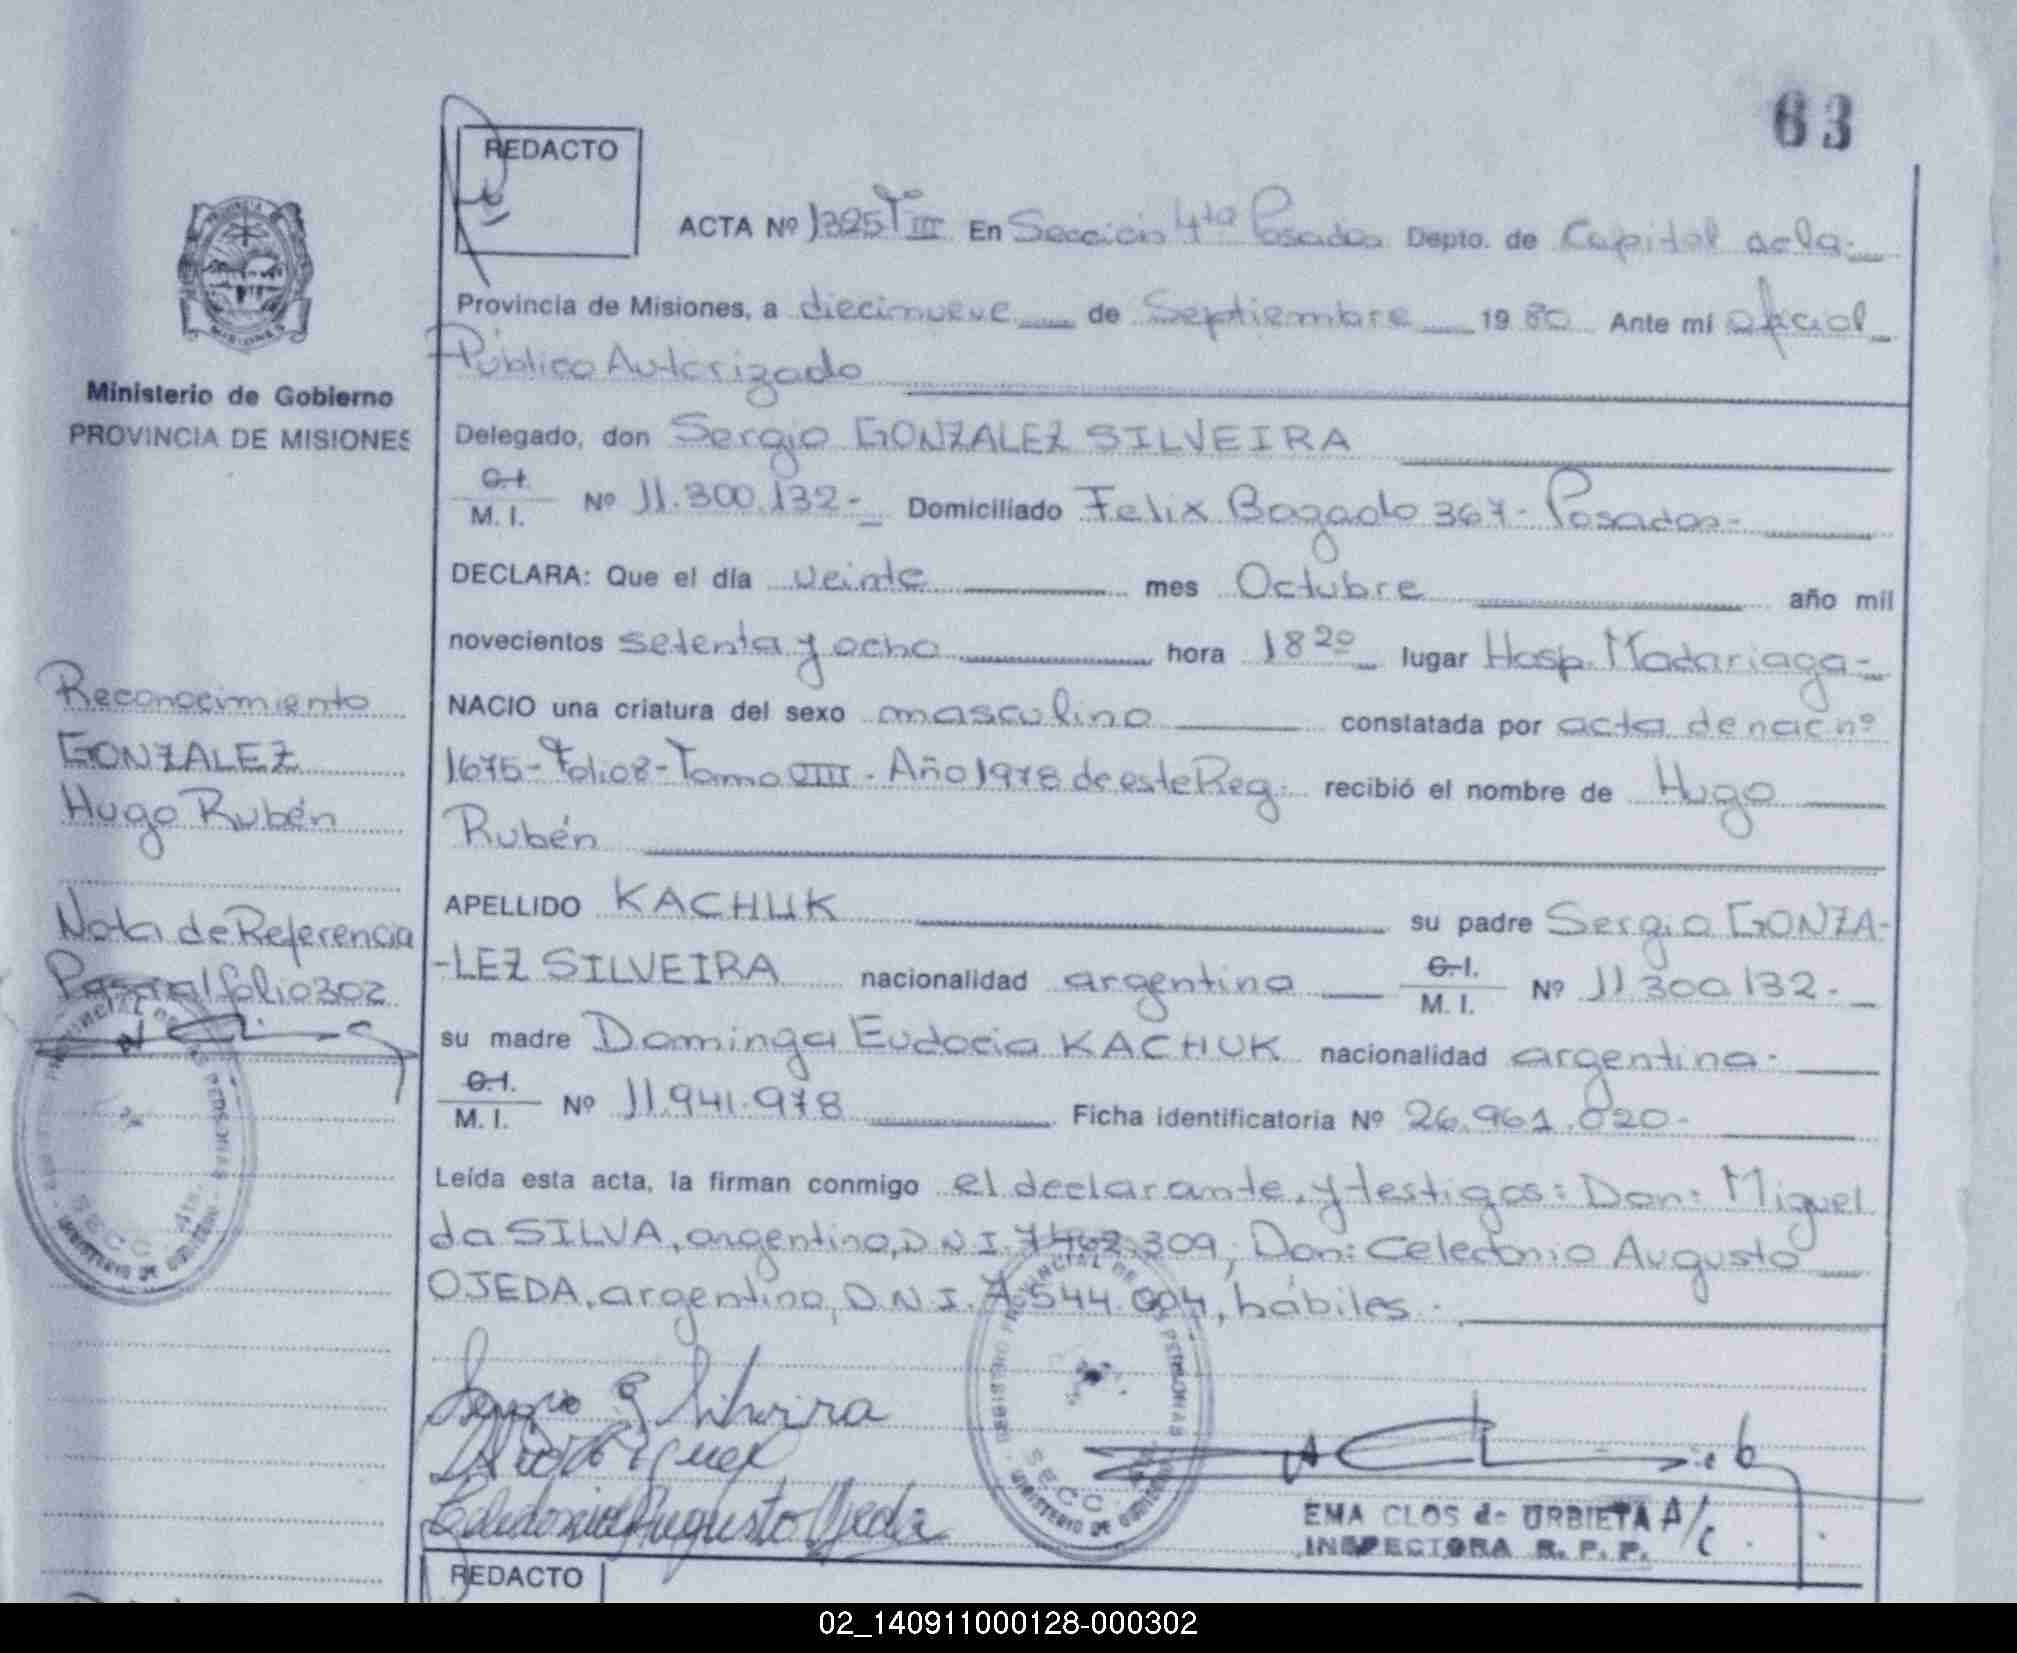 63
REDACTO
ACTA Nº 1325 T III En Sección 4ta Posadas Depto. de Capital de la
Provincia de Misiones, a diecinueve de Septiembre 19 80 Ante mí oficial
Público Autorizado
Delegado, don Sergio GONZALEZ SILVEIRA
C.I. M. I. Nº 11.300.132- Domiciliado Felix Bogado 367- Posadas-
DECLARA: Que el día veinte mes Octubre año mil
novecientos setenta y ocho hora 18 20 lugar Hosp. Madariaga-
NACIO una criatura del sexo masculino constatada por acta de nac nº
1675- Folio8- Tomo VIII - Año 1978 de este Reg. recibió el nombre de Hugo
Rubén
APELLIDO KACHUK su padre Sergio GONZA-
-LEZ SILVEIRA nacionalidad argentina C.I. M. I. Nº 11.300.132-
su madre Dominga Eudocia KACHUK nacionalidad argentina-
C.I. M. I. Nº 11.941.978 Ficha identificatoria Nº 26.961.020-
Leída esta acta, la firman conmigo el declarante, y testigos: Don: Miguel
da SILVA, argentino, D N I. 7.462.309, Don: Celedonio Augusto
OJEDA, argentino, D.N.I. 7.544.004, hábiles.
Sergio G Silveira
Celedonio Augusto Ojeda
EMA CLOS de URBIETA A/C
INSPECTORA R. P. P.
REDACTO
PROVINCIA DE
MISIONES
Ministerio de Gobierno
PROVINCIA DE MISIONES
Reconocimiento
GONZALEZ
Hugo Rubén
Nota de Referencia
Pasa al folio 302
REGISTRO PROVINCIAL DE LAS PERSONAS
SECC. 4ta.
MINISTERIO DE GOBIERNO
REGISTRO PROVINCIAL DE LAS PERSONAS
SECC. 4ta.
MINISTERIO DE GOBIERNO
02_140911000128-000302